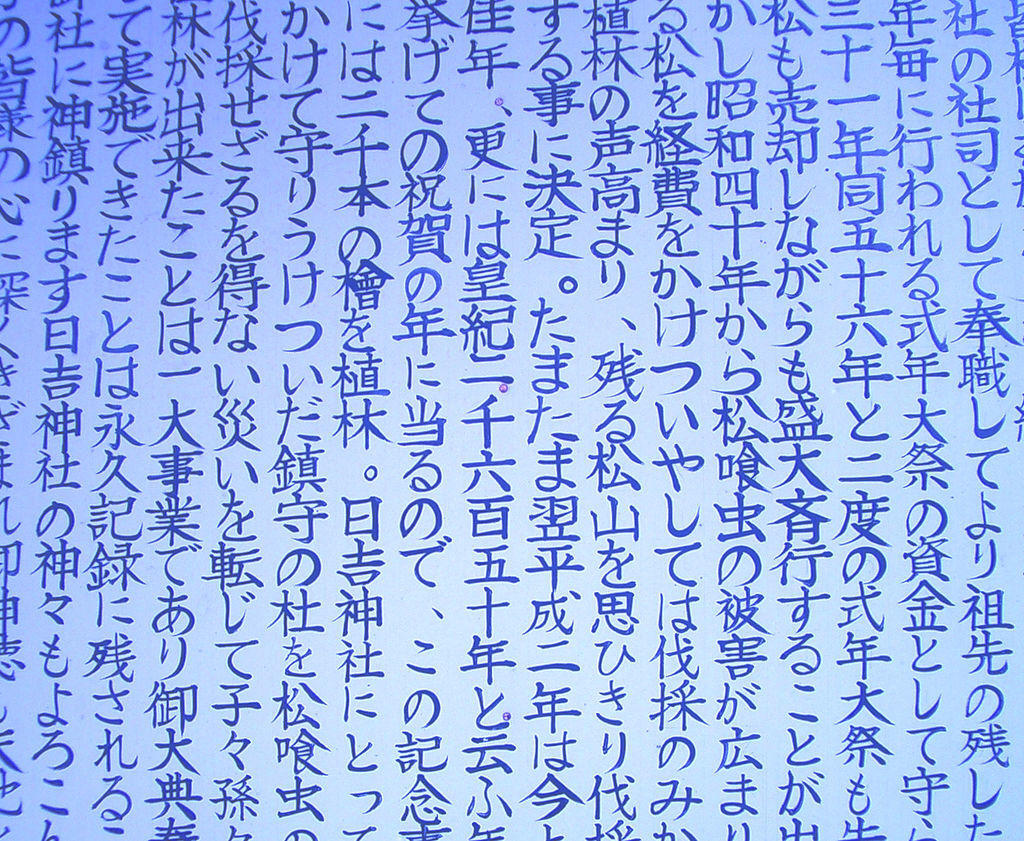 社の社司として奉職してより祖先の残した
年毎に行われる式年大祭の資金として守ら
三十一年同五十六年と二度の式年大祭も
松も売却しながらも盛大斉行することが出
かし昭和四十年から松喰虫の被害が広まり
る松を経費をかけついやしては伐採のみか
植林の声高まり、残る松山を思ひきり伐採
する事に決定。たまたま翌平成二年は今
佳年、更には皇紀二千六百五十年と云ふ年
挙げての祝賀の年に当るので、この記念事
には二千本の檜を植林。日吉神社にとって
かけて守りうけついだ鎮守の杜を松喰虫の
伐採せざるを得ない災いを転じて子々孫々
林が出来たことは一大事業であり御大典奉
て実施できたことは永久記録に残されるこ
社に神鎮ります日吉神社の神々もよろこん
の皆様の心に深くきざまれ御神徳